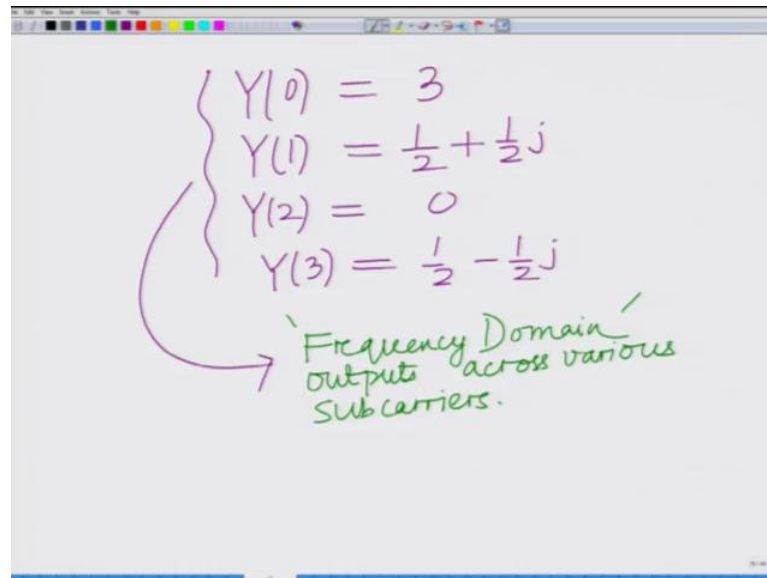 Y(0) = 3
Y(1) = 1/2 + 1/2 j
Y(2) = 0
Y(3) = 1/2 - 1/2 j
'Frequency Domain'
outputs across various
subcarriers.